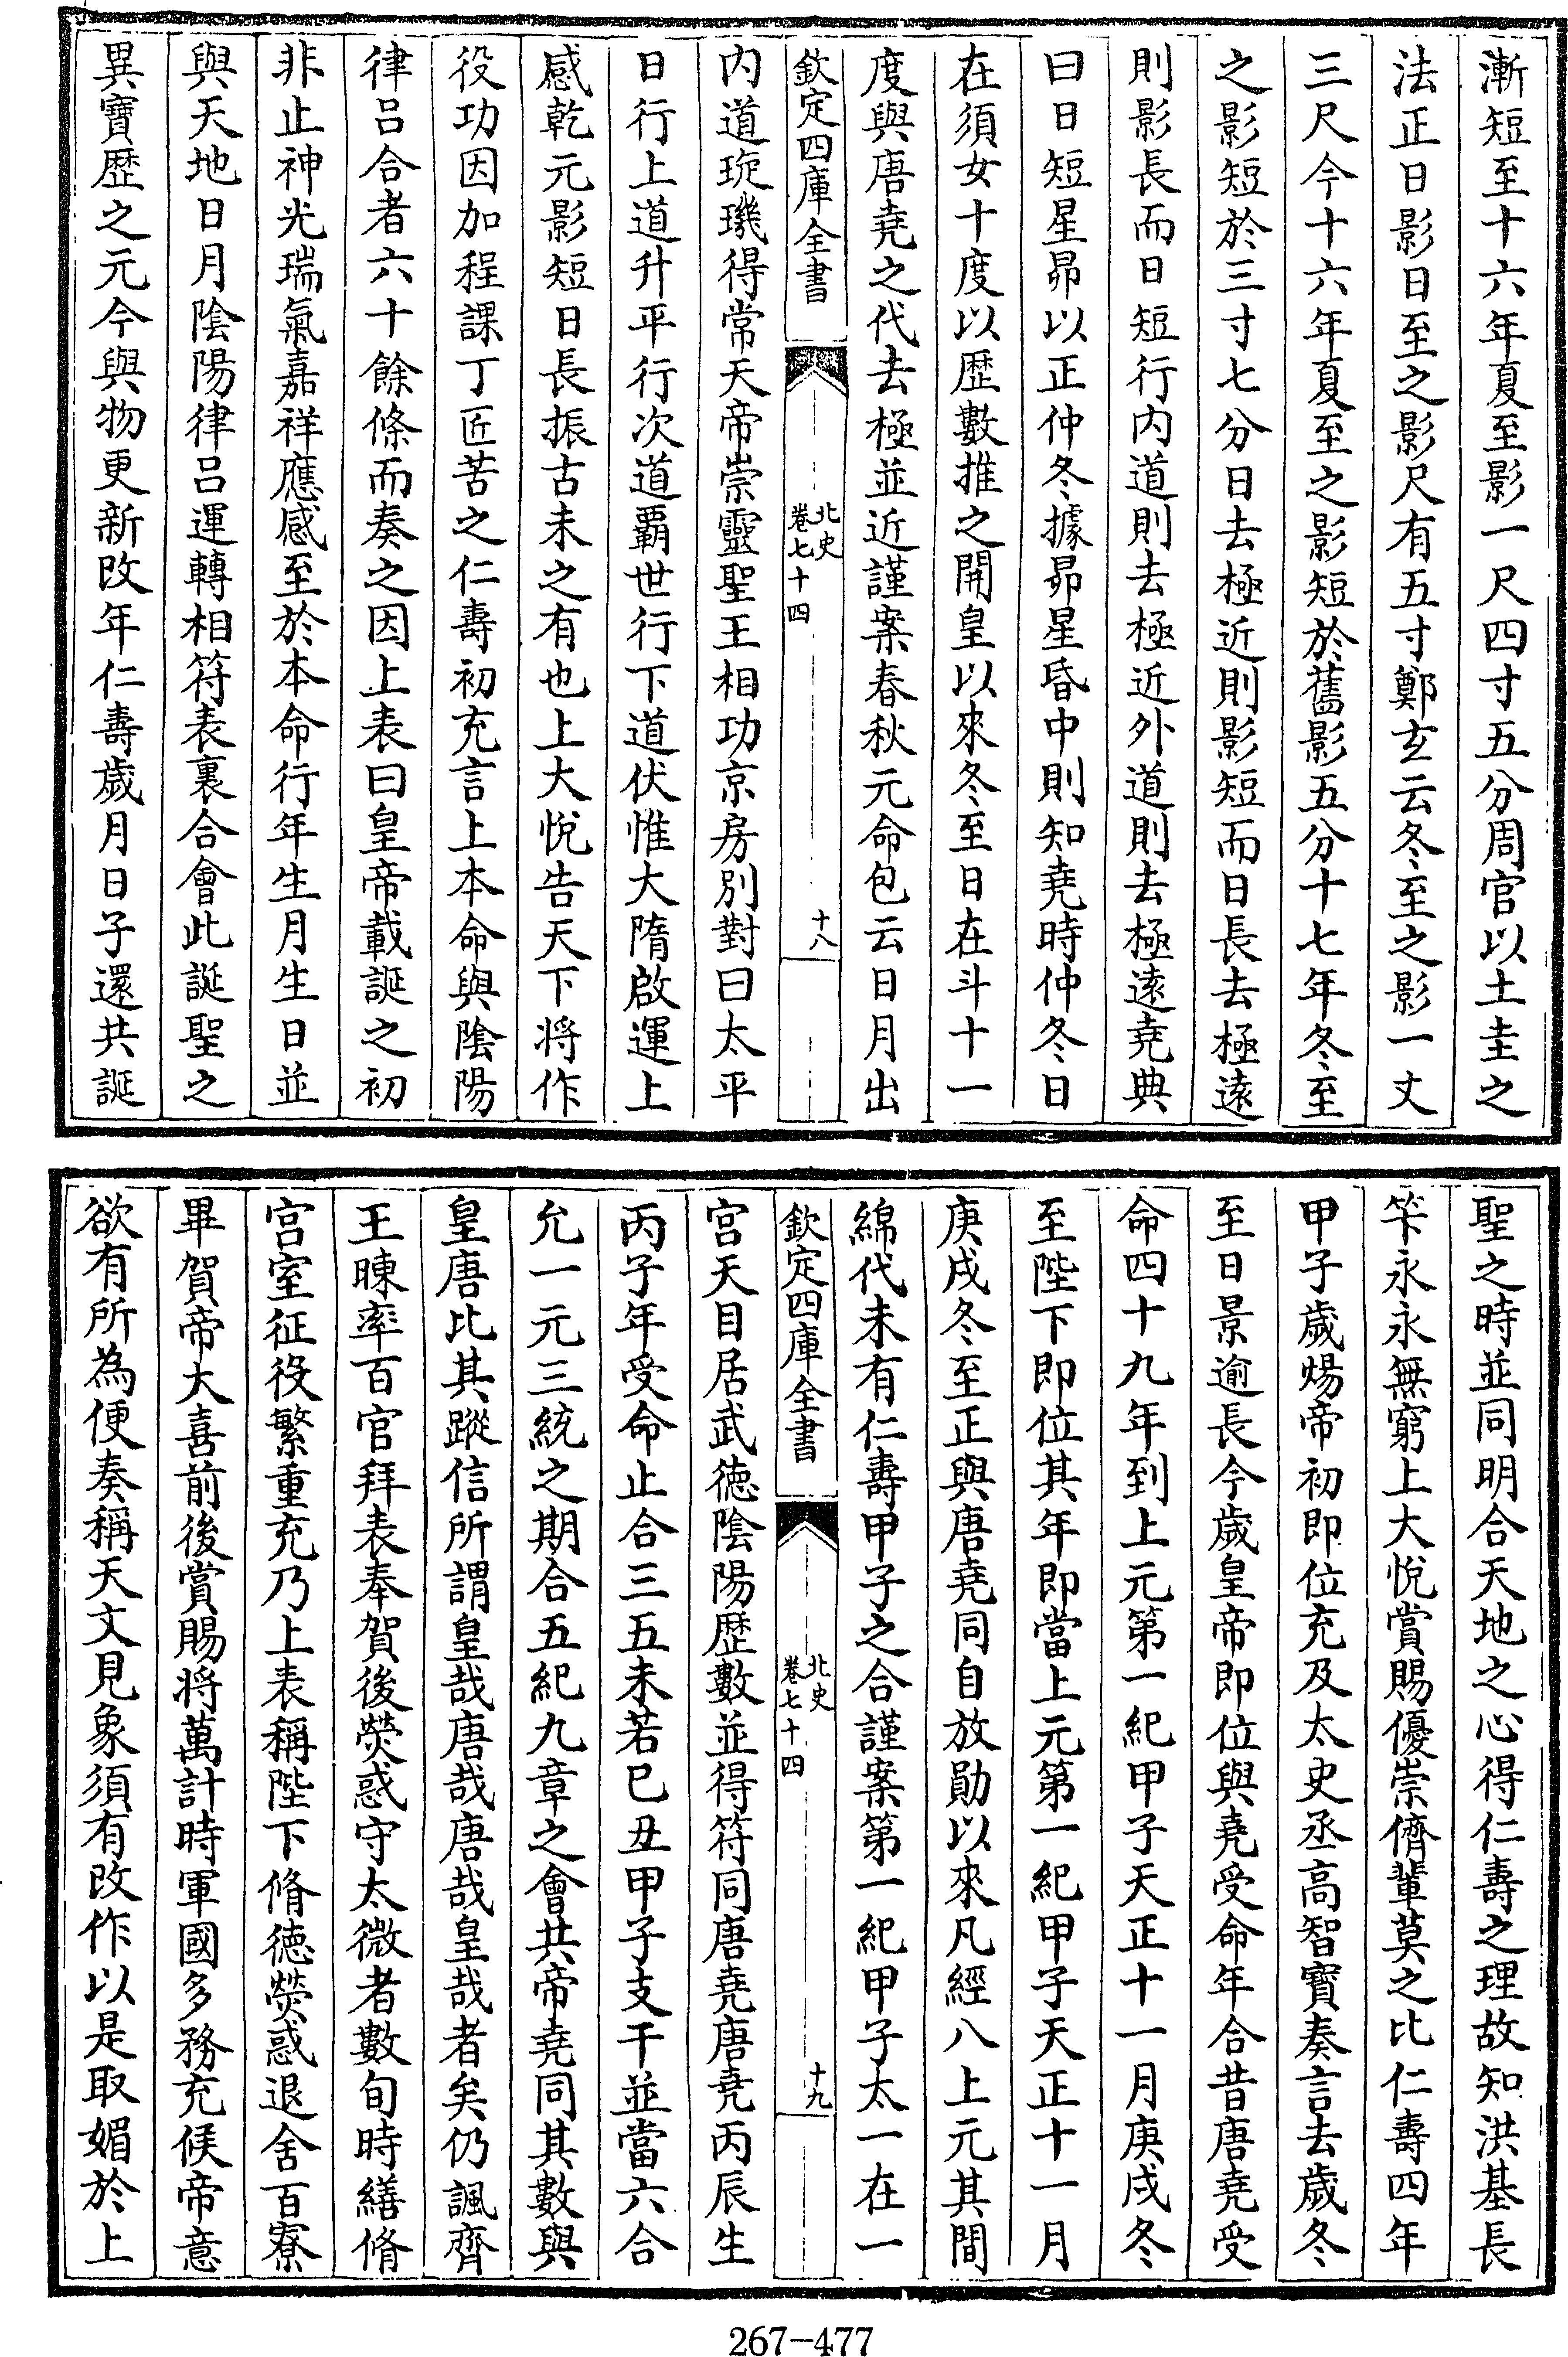 漸短至十六年夏至影一尺四寸五分周官以土圭之
法正日影日至之影尺有五寸鄭玄云冬至之影一丈
三尺今十六年夏至之影短於舊影五分十七年冬至
之影短於三寸七分日去極近則影短而日長去極遠
則影長而日短行内道則去極近外道則去極遠堯典
曰日短星昴以正仲冬據昴星昏中則知堯時仲冬日
在須女十度以歴數推之開皇以來冬至日在斗十一
度與唐堯之代去極並近謹案春秋元命包云日月出
欽定四庫全書
北史
卷七十四
十八
内道琁璣得常天帝崇靈聖王相功京房別對曰太平
日行上道升平行次道霸世行下道伏惟大隋啟運上
感乾元影短日長振古未之有也上大悅告天下將作
役功因加程課丁匠苦之仁壽初充言上本命與隂陽
律呂合者六十餘條而奏之因上表曰皇帝載誕之初
非止神光瑞氣嘉祥應感至於本命行年生月生日並
與天地日月隂陽律呂運轉相符表裏合會此誕聖之
異寶歴之元今與物更新改年仁壽歲月日子還共誕
聖之時並同明合天地之心得仁壽之理故知洪基長
筭永永無窮上大悅賞賜優崇儕輩莫之比仁壽四年
甲子歲煬帝初即位充及太史丞高智寶奏言去歲冬
至日景逾長今歲皇帝即位與堯受命年合昔唐堯受
命四十九年到上元第一紀甲子天正十一月庚戌冬
至陛下即位其年即當上元第一紀甲子天正十一月
庚戌冬至正與唐堯同自放勛以來凡經八上元其間
綿代未有仁壽甲子之合謹案第一紀甲子太一在一
欽定四庫全書
北史
卷七十四
十九
宫天目居武徳隂陽歴數並得符同唐堯唐堯丙辰生
丙子年受命止合三五未若巳丑甲子支干並當六合
允一元三統之期合五紀九章之會共帝堯同其數與
皇唐比其蹤信所謂皇哉唐哉唐哉皇哉者矣仍諷齊
王暕率百官拜表奉賀後熒惑守太微者數旬時繕脩
宫室征役繁重充乃上表稱陛下脩徳熒惑退舍百寮
畢賀帝大喜前後賞賜將萬計時軍國多務充候帝意
欲有所為便奏稱天文見象須有改作以是取媚於上
267-477